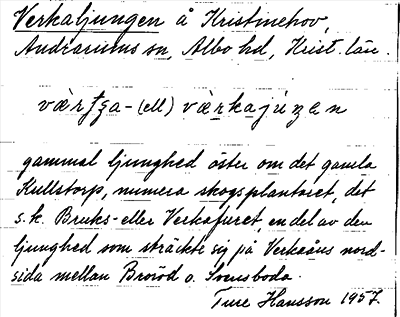 Verkaljungen å Kristinehov,
Andrarums sn, Albo hd, Krist. län.
(ell)
gammal ljunghed öster om det gamla
Kullstorp, numera skogsplanterat, det
s.k. Bruks- eller Verkafuret, en del av den
ljunghed som sträckte sig på Verkaåns nord-
sida mellan Broöd o. Svensboda.
Ture Hansson 1957.